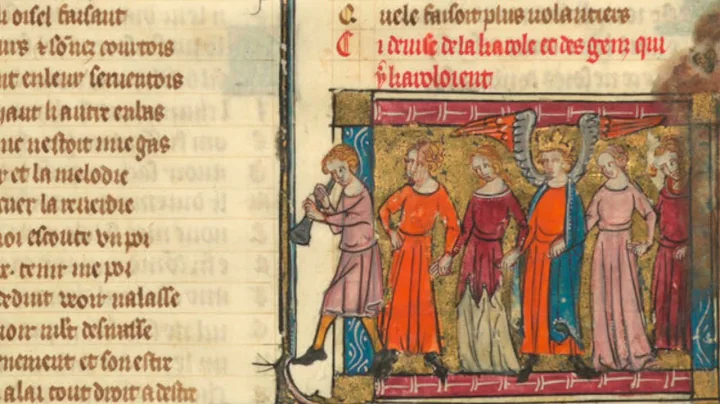 oisel faisant
& sõnez courtois
en leur seruentois
haut li autre en bas
nestoit mie gas
et la melodie
la reuerdie
oi escoute vn poi
tenir me poi
deduit veoir nalasse
mlt desirasse
et son estre
alai tout droit a destre
Q uele faisoit plus uolantiers
C i deuise de la karole et des genz qui
y karoloient